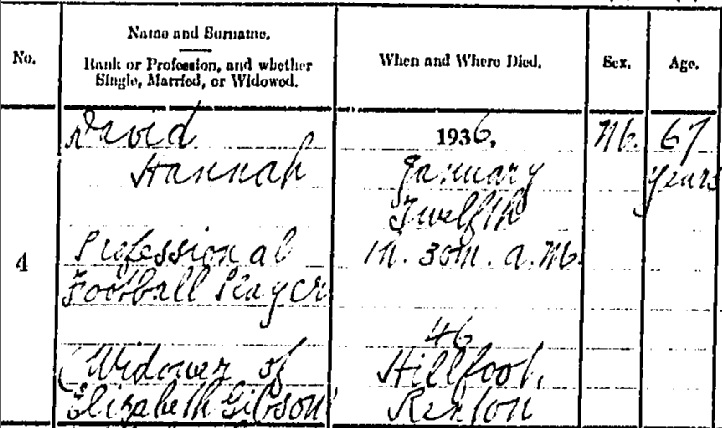 No.
Name and Surname.
Rank or Profession, and whether
Single, Married, or Widowed.
When and Where Died.
Sex.
Age.
4
David
Hannah
Professional
Football Player
(Widower of
Elizabeth Gibson
1936,
January
Twelfth
1h. 30m. a.m.
46
Hillfoot,
Renton
M.
67
years